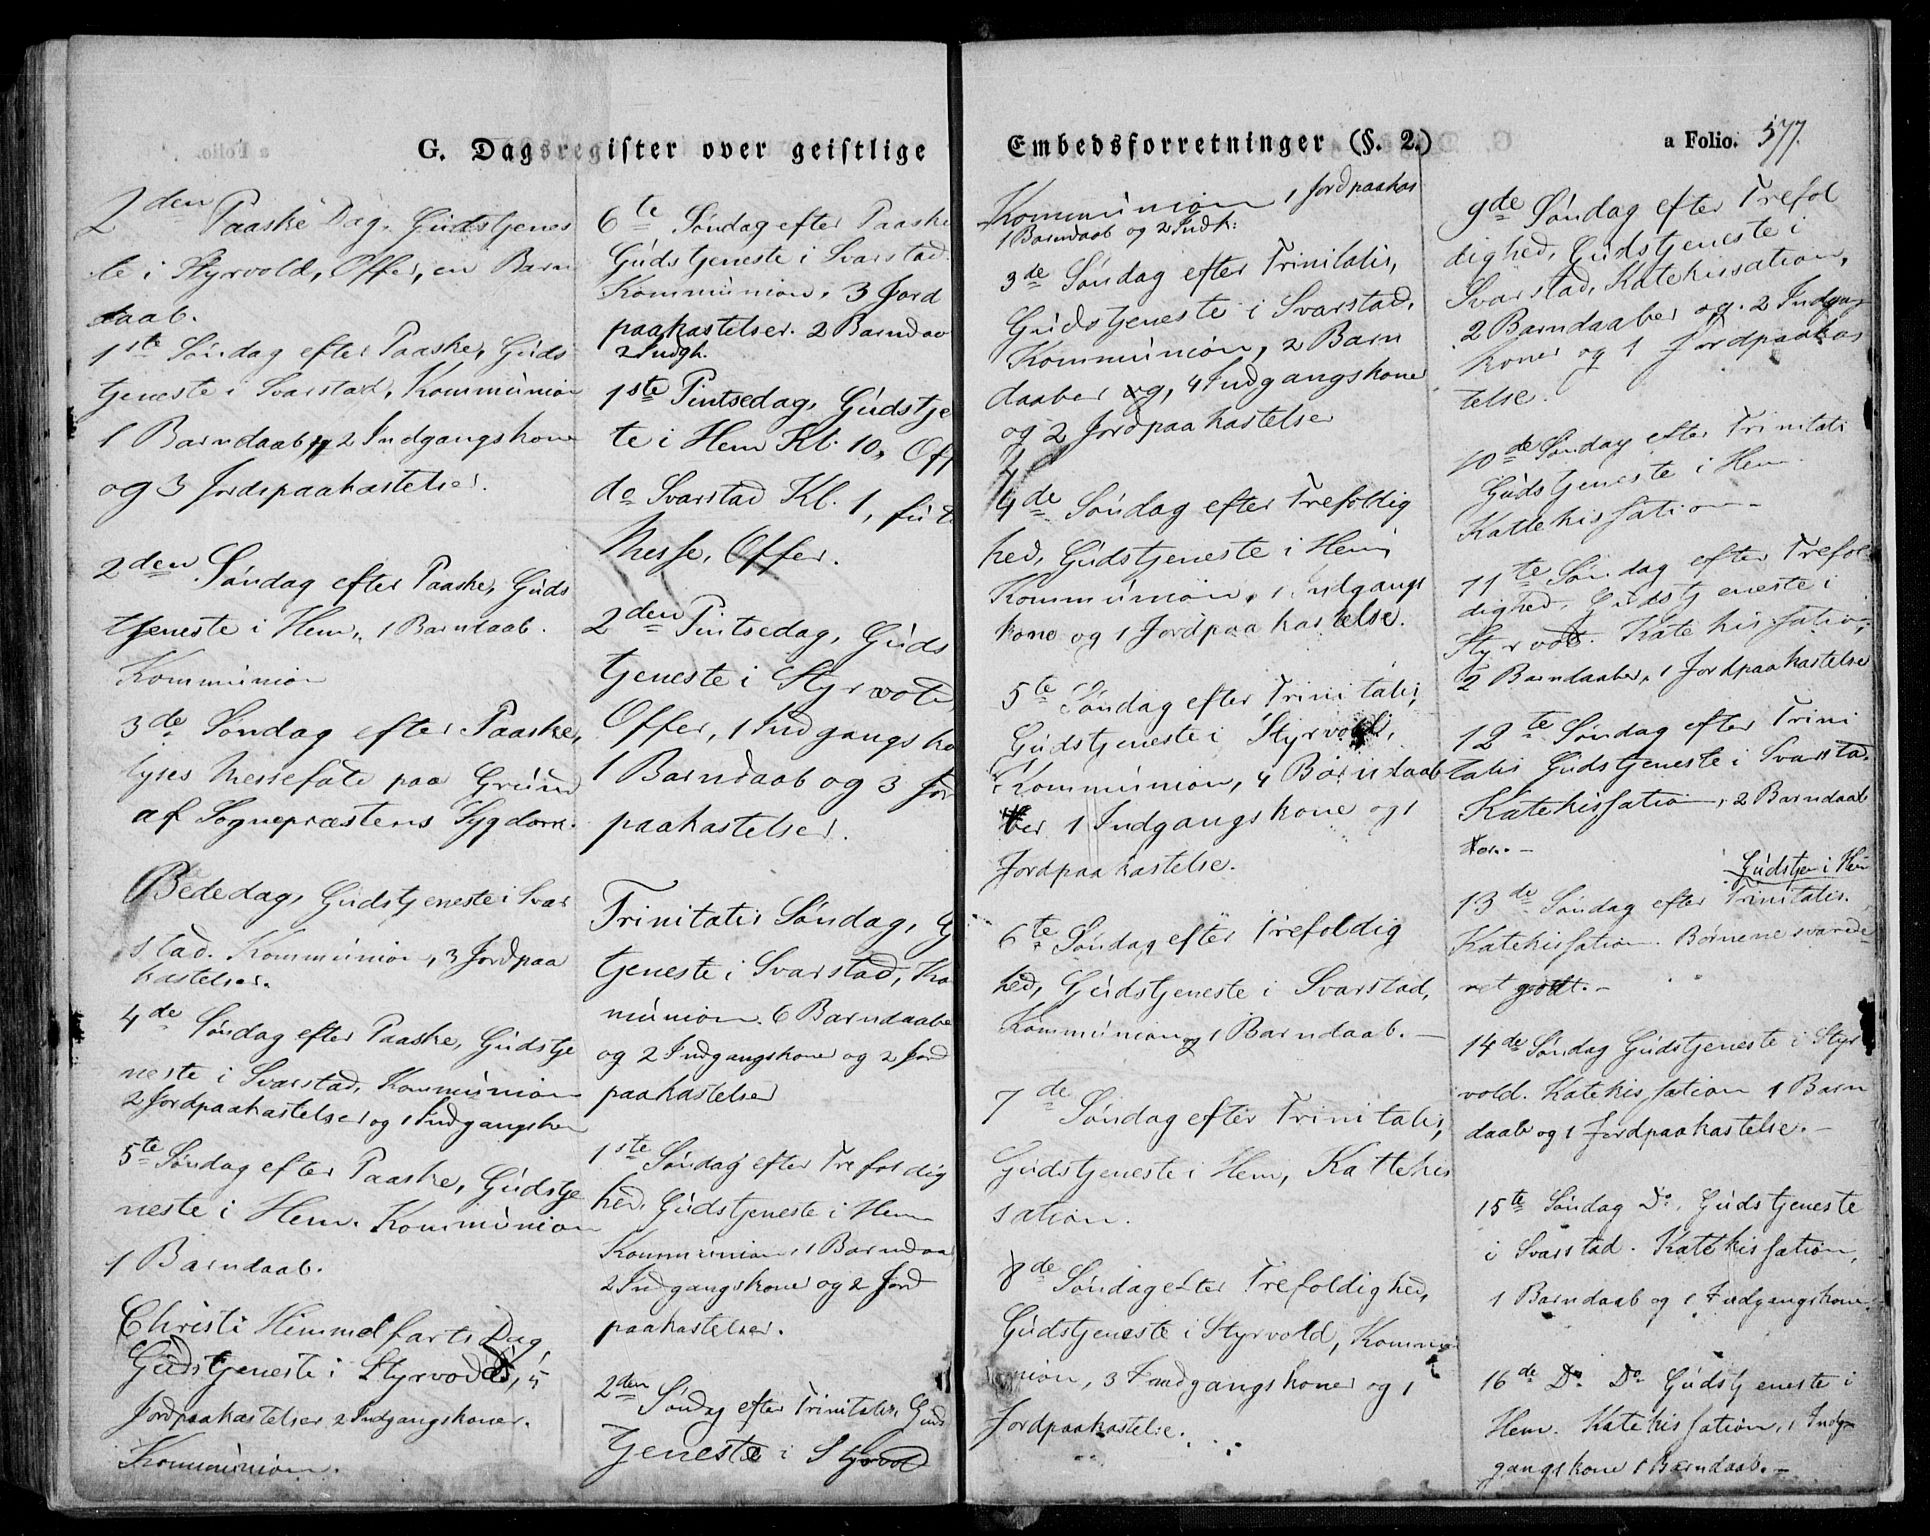 G. Dagsregister over geistlige
2den Paaske Dag, Gudstjenes
te i Styrvold, Offer, en Barn
daab.
1ste Søndag efter Paaske, Guds
tjeneste i Svarstad, Kommunion
1 Barndaab, 2 Indgangskone
og 3 Jordspaakastelser.
2den Søndag efter Paaske, Guds
tjeneste i Hem, 1 Barndaab.
Kommunion
3de Søndag efter Paaske,
lyses Messefale paa Grund
af Sognepræstens Sygdom.
Bededag, Gudstjeneste i Svar
stad. Kommunion, 3 Jordpaa
kastelser.
4de Søndag efter Paaske, Gudstje
neste i Svarstad, Kommunion
2 Jordpaakastelser og 1 Indgangskon
5te Søndag efter Paaske, Gudstje
neste i Hem. Kommunion
1 Barndaab.
Christi Himmelfarts Dag,
Gudstjeneste i Styrvold, 5
Jordpaakastelser 2 Indgangskoner.
Kommunion.
6te Søndag efter Paaske
Gudstjeneste i Svarstad.
Kommunion, 3 Jord
paakastelser. 2 Barndaa
2 Indgk.
1ste Pintsedag, Gudstje
te i Hem Kl. 10, Off
do Svarstad Kl. 1,
Messe, Offer.
2den Pintsedag, Guds
tjeneste i Styrvold,
Offer, 1 Indgangsko
1 Barndaab og 3 Jor
paakastelser.
Trinitatis Søndag, G
tjeneste i Svarstad, Ko
munion. 6 Barndaabe
og 2 Indgangskoner og 2 Jord
paakastelser
1ste Søndag efter Trefoldig
hed, Gudstjeneste i Hem
Kommunion, 1 Barndaa
2 Indgangskoner og 2 Jord
paakastelser.
2den Søndag efter Trinitatis, Guds
tjeneste i Styrvold
Embedsforretninger (§. 2.)
a Folio. 577.
Kommunion 1 Jordpaakas
1 Barndaab og 2 Indk:
3de Søndag efter Trinitatis,
Gudstjeneste i Svarstad,
Kommunion, 2 Barn
daaber og, 4 Indgangskoner
og 2 Jordpaakastelser
4de Søndag efter Trefoldig
hed, Gudstjeneste i Hem,
Kommunion, 1 Indgangs
kone og 1 Jordpaakastelse.
5te Søndag efter Trinitatis,
Gudstjeneste i Styrvold,
Kommunion, 4 Barndaab
ber 1 Indgangskone og 1
Jordpaakastelse.
6te Søndag efter Trefoldig
hed, Gudstjeneste i Svarstad,
Kommunion og 1 Barndaab.
7de Søndag efter Trinitatis,
Gudstjeneste i Hem, Kattekis
sation.
8de Søndag efter Trefoldighed,
Gudstjeneste i Styrvold, Kommu
nion, 3 Indgangskoner og 1
Jordpaakastelse.
9de Søndag efter Trefol
dighed, Gudstjeneste i
Svarstad, Katekissation,
2 Barndaaber og 2 Indgang
koner og 1 Jordpaakas
telse.
10de Søndag efter Trinitati
Gudstjeneste i Hem.
Kattekissation
11te Søndag efter Trefol
dighed, Gudstjeneste i
Styrvold. Katekissation,
2 Barndaaber, 1 Jordpaakastelse
12te Søndag efter Trini
tatis Gudstjeneste i Svarstad.
Katekissation, 2 Barndaab
Gudstjen i Hem
13de Søndag efter Trinitatis.
Katekissation. Børnene svarede
ret godt.
14de Søndag Gudstjeneste i Styr
vold. Katekissation 1 Barn
daab og 1 Jordpaakastelse.
15te Søndag Do. Gudstjeneste
i Svarstad. Katekissation,
1 Barndaab og 1 Indgangskone.
16de Do Do Gudstjeneste i
Hem. Katekissation, 1 Indg
gangskone 1 Barndaab.